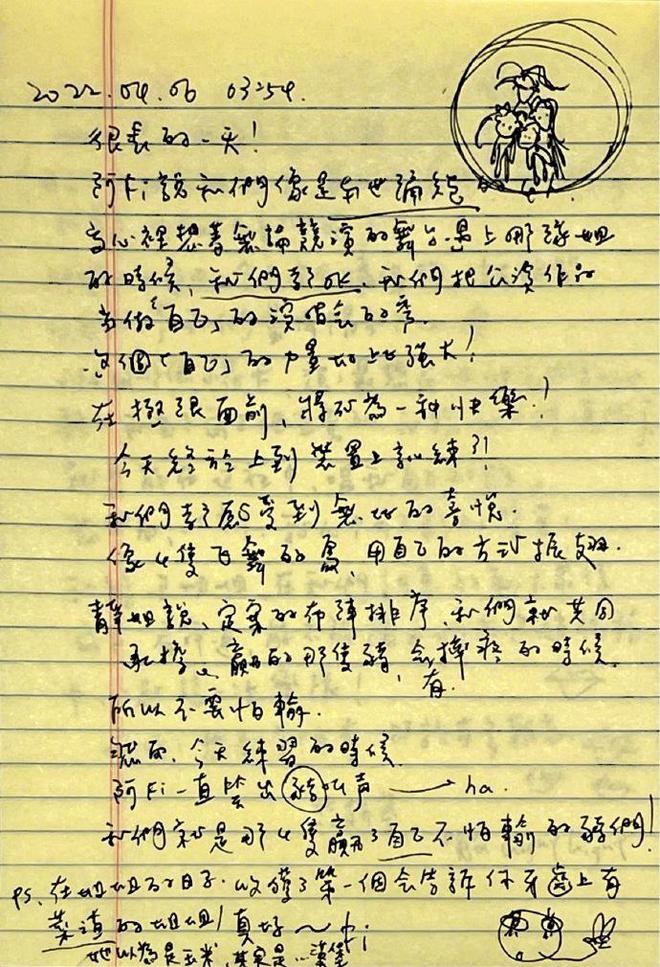 2022.04.06 03:54.
很長的一天!
阿Fi說我們像是有世論絕的
當心裡想著無論競演的舞台遇上哪隊姐
的時候,我們都OK.我們把公演作品
當做「自己」的演唱會的秀.
這個「自己」的力量如此強大!
在極限面前,轉化為一種快樂!
今天終於上到裝置上訓練了!
我們都感受到無比的喜悅.
像4隻飛舞的鳥,用自己的方式振翅.
菁華姐說,定案的布陣排序,我們就共同
承擔。贏的那隻豬,會有摔疼的時候.
所以不要怕輸.
然而,今天練習的時候
阿Fi一直笑出豬叫声 → ha.
我們就是那4隻贏了自己不怕輸的豬們!
PS、在姐姐的日子.收穫了第一個会告訴你牙齒上有
菜渣的姐姐!真好~fi
她以為是玉米,其實是…漢堡